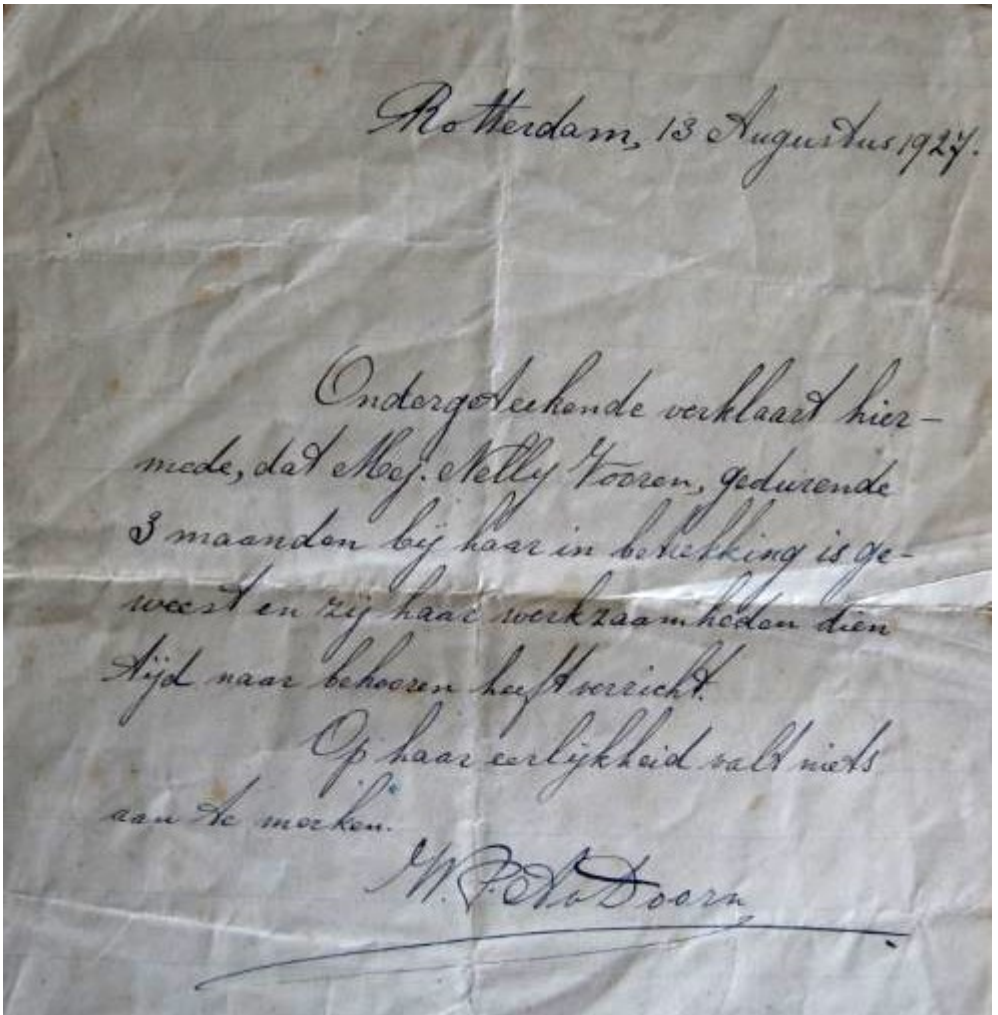 Rotterdam, 13 Augustus 1927.
Ondergeteekende verklaart hier-
mede, dat Mej. Nelly Vooren, gedurende
3 maanden bij haar in betrekking is ge-
weest en zij haar werkzaamheden dien
tijd naar behooren heeft verricht.
Op haar eerlijkheid valt niets
aan te merken.
Doorn